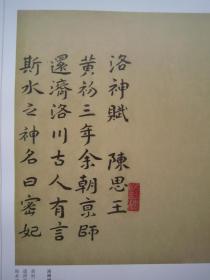 洛神賦 陳思王
黄初三年余朝京師
還濟洛川古人有言
斯水之神名曰宓妃